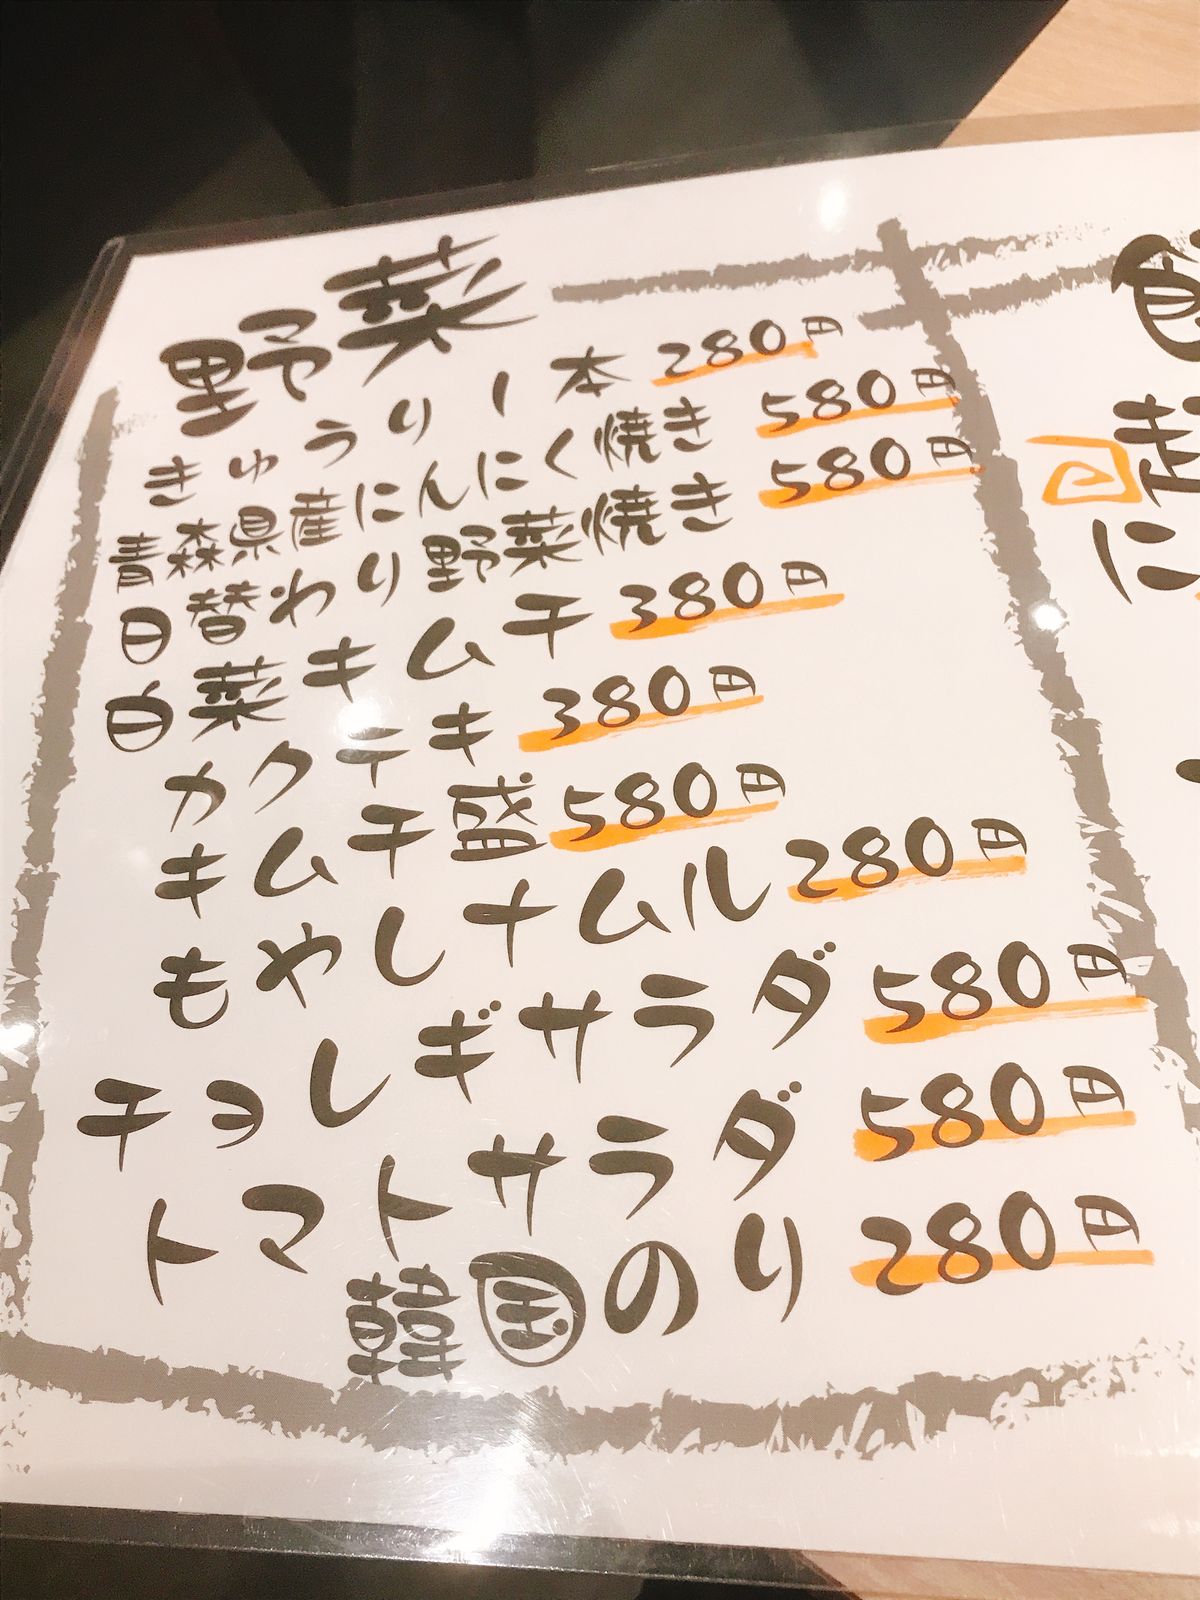 野菜
きゅうり一本 280円
青森県産にんにく焼き 580円
日替わり野菜焼き 580円
白菜キムチ 380円
カクテキ 380円
キムチ盛 580円
もやしナムル 280円
チョレギサラダ 580円
トマトサラダ 580円
韓国のり 280円
起
に